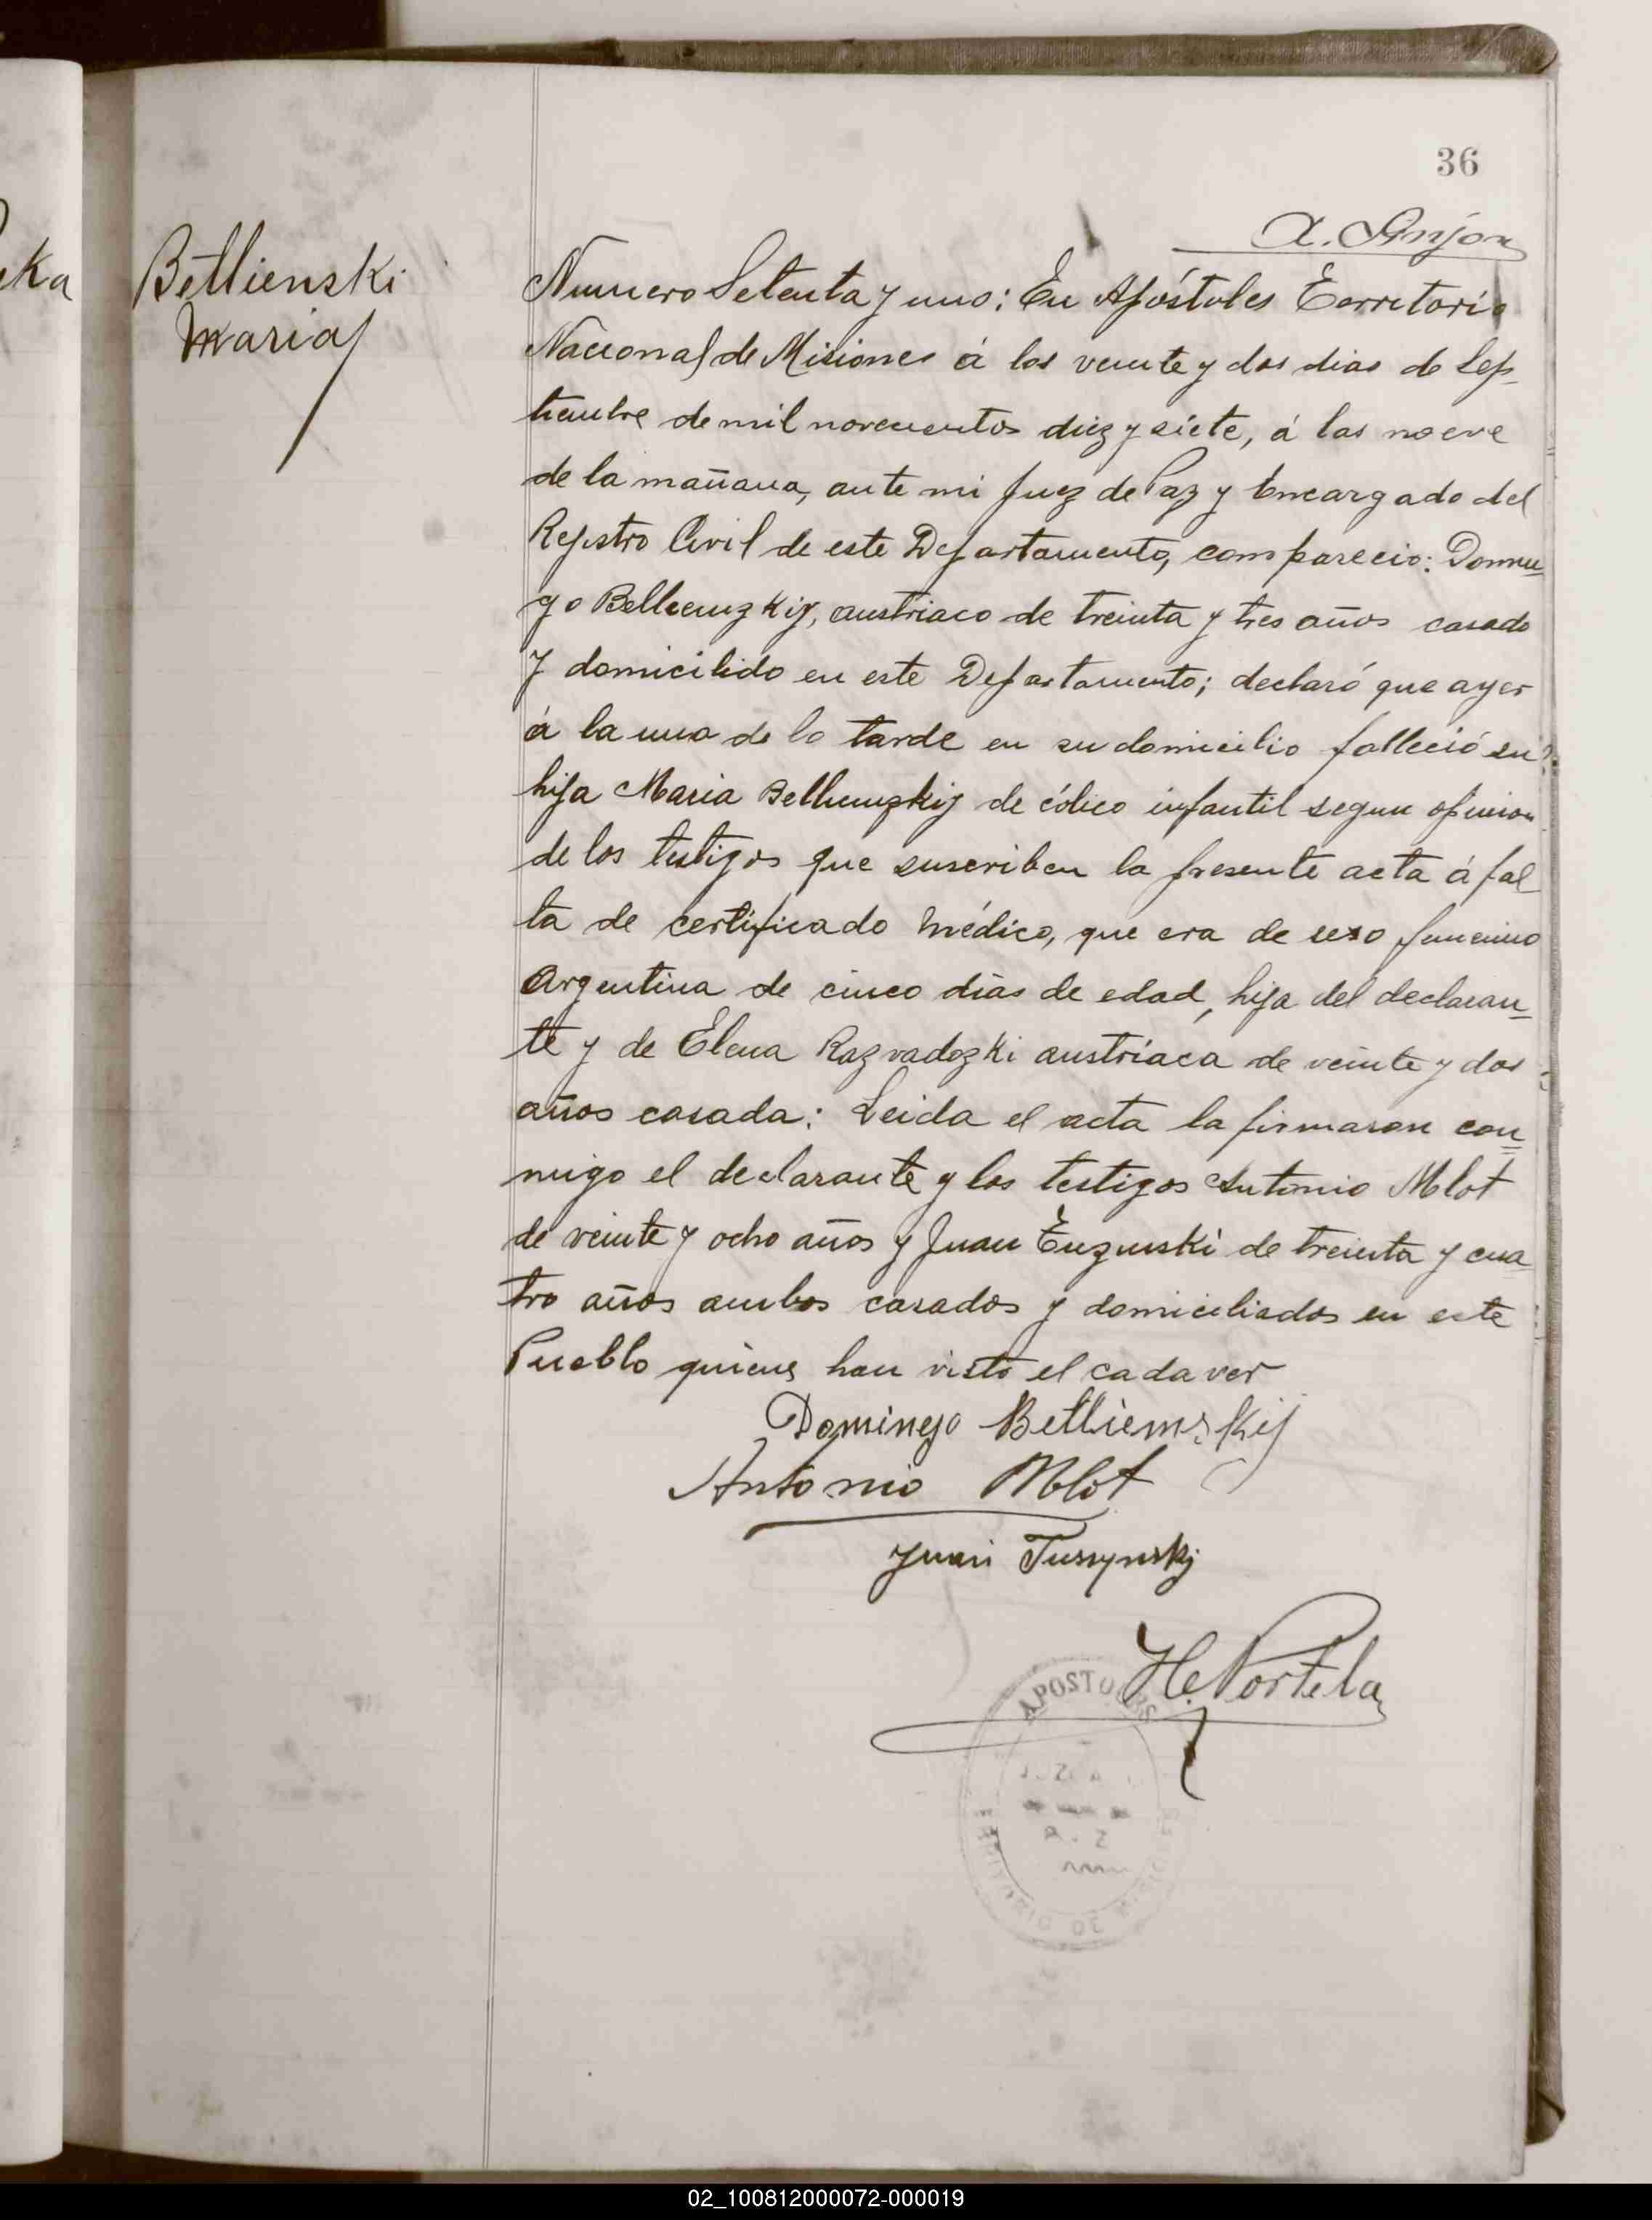 36
A. Anjon
Betlienski
Maria
Numero Setenta y uno: En Apóstoles Territorio
Nacional de Misiones á los veinte y dos dias de Sep-
tiembre de mil novecientos diez y siete, á las nueve
de la mañana, ante mi Juez de Paz y Encargado del
Registro Civil de este Departamento, comparecio: Domin-
go Betliemzkij, austriaco de treinta y tres años casado
y domicilido en este Departamento; declaró que ayer
á la una de la tarde en su domicilio falleció su
hija Maria Betliemzkij de cólico infantil segun opinion
de los testigos que suscriben la presente acta á fal-
ta de certificado médico, que era de sexo femenino
Argentina de cinco dias de edad, hija del declaran-
te y de Elena Razvadozki austríaca de veinte y dos
años casada: Leida el acta la firmaron con-
migo el declarante y los testigos Antonio Mlot
de veinte y ocho años y Juan Tuzinski de treinta y cua-
tro años ambos casados y domiciliados en este
Pueblo quienes han visto el cadaver
Domingo Betliemskij
Antonio Mlot
Juan Tuszynskj
H. Portela
APOSTOLES
02_100812000072-000019